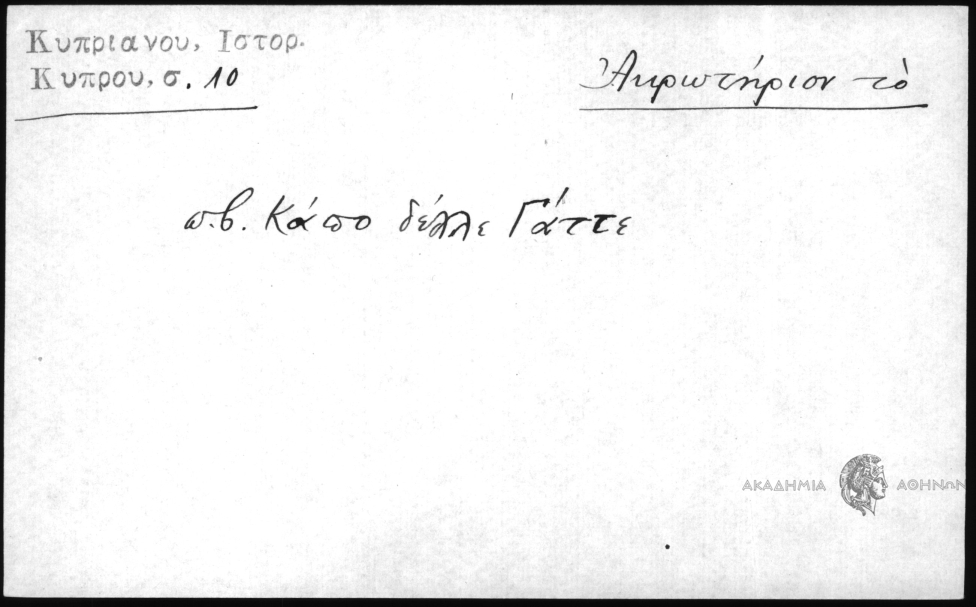 Κυπριανου, Ιστορ.
Κυπρου, σ. 10
Ἀκρωτήριον τὸ
π.β. Κάπο δέλλε Γάττε
ΑΚΑΔΗΜΙΑ ΑΘΗΝΩΝ